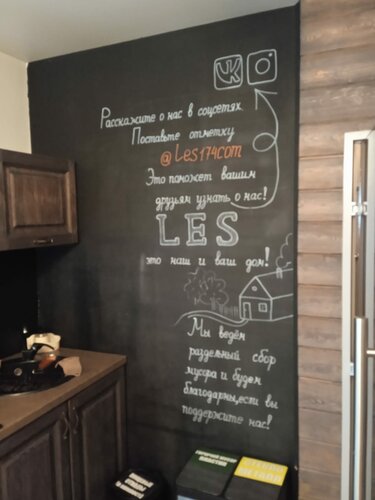 Расскажите о нас в соцсетях.
Поставьте отметку
@Les174com
Это поможет вашим
друзьям узнать о нас!
LES
это наш и ваш дом!
Мы ведём
раздельный сбор
мусора и будем
благодарны, если вы
поддержите нас!